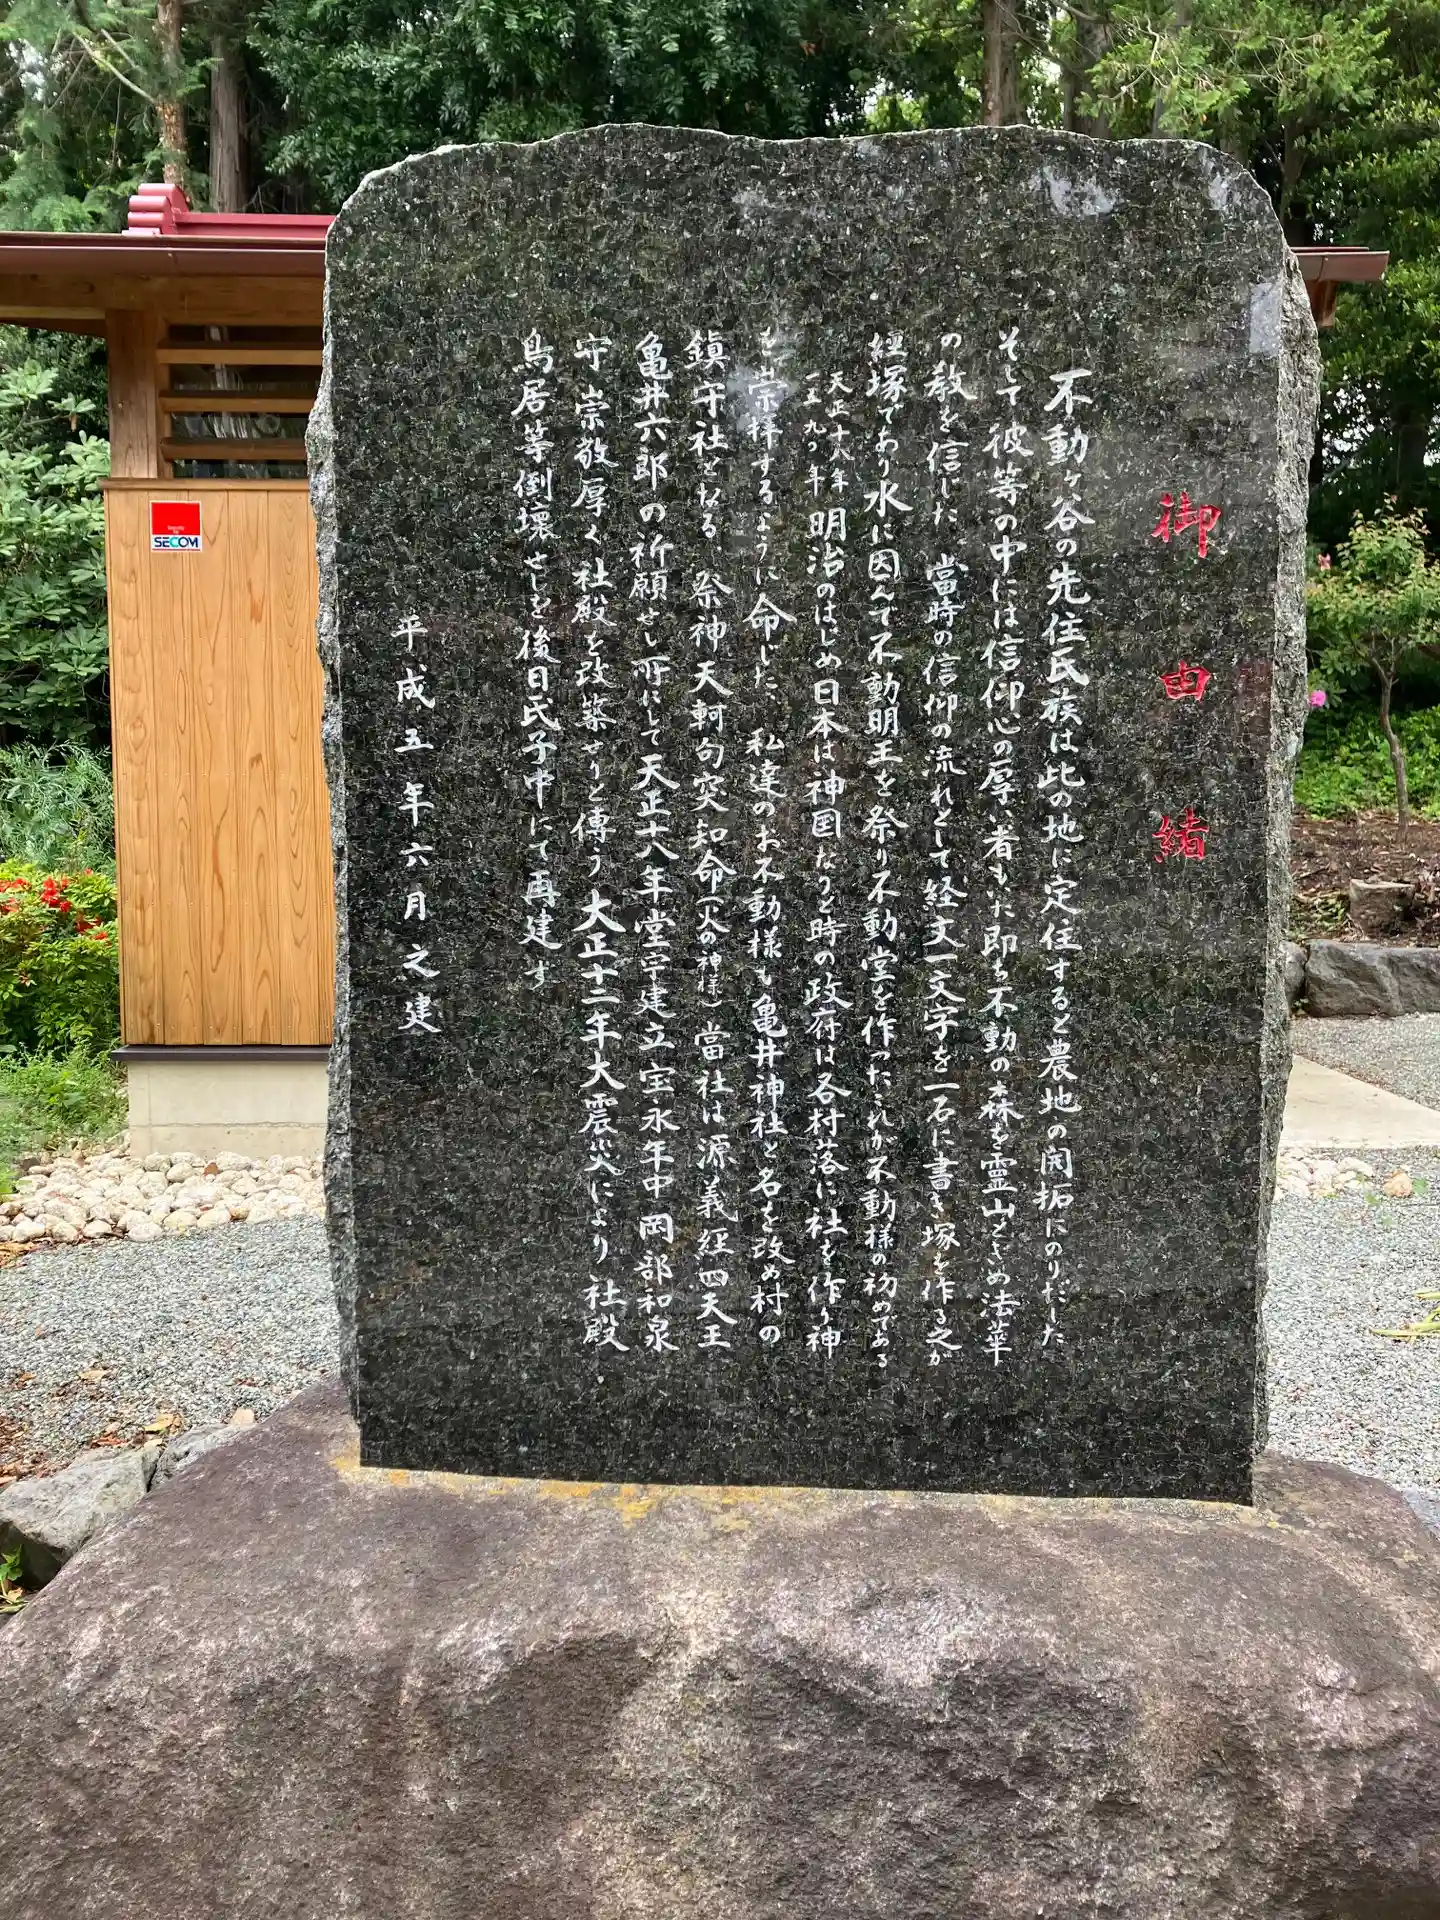 御由緒
不動ヶ谷の先住民族は此の地に定住すると農地の開拓にのりだした
そして彼等の中には信仰心の厚い者もいた即ち不動の森を霊山ときめ法華
の教を信じた、當時の信仰の流れとして経文一文字を一石に書き塚を作る之が
經塚であり水に因んで不動明王を祭り不動堂を作ったこれが不動様の初めである
天正十八年
一五九〇年
明治のはじめ日本は神国なりと時の政府は各村落に社を作り神
を崇拝するように命じた、私達のお不動様も亀井神社と名を改め村の
鎮守社となる、祭神天軻句突知命(火の神様)當社は源義経四天王
亀井六郎の祈願せし所にして天正十八年堂宇建立宝永年中岡部和泉
守崇敬厚く社殿を改築せりと傳う大正十二年大震災により社殿、
鳥居等倒壊せしを後日氏子中にて再建す
平成五年六月之建
SECOM